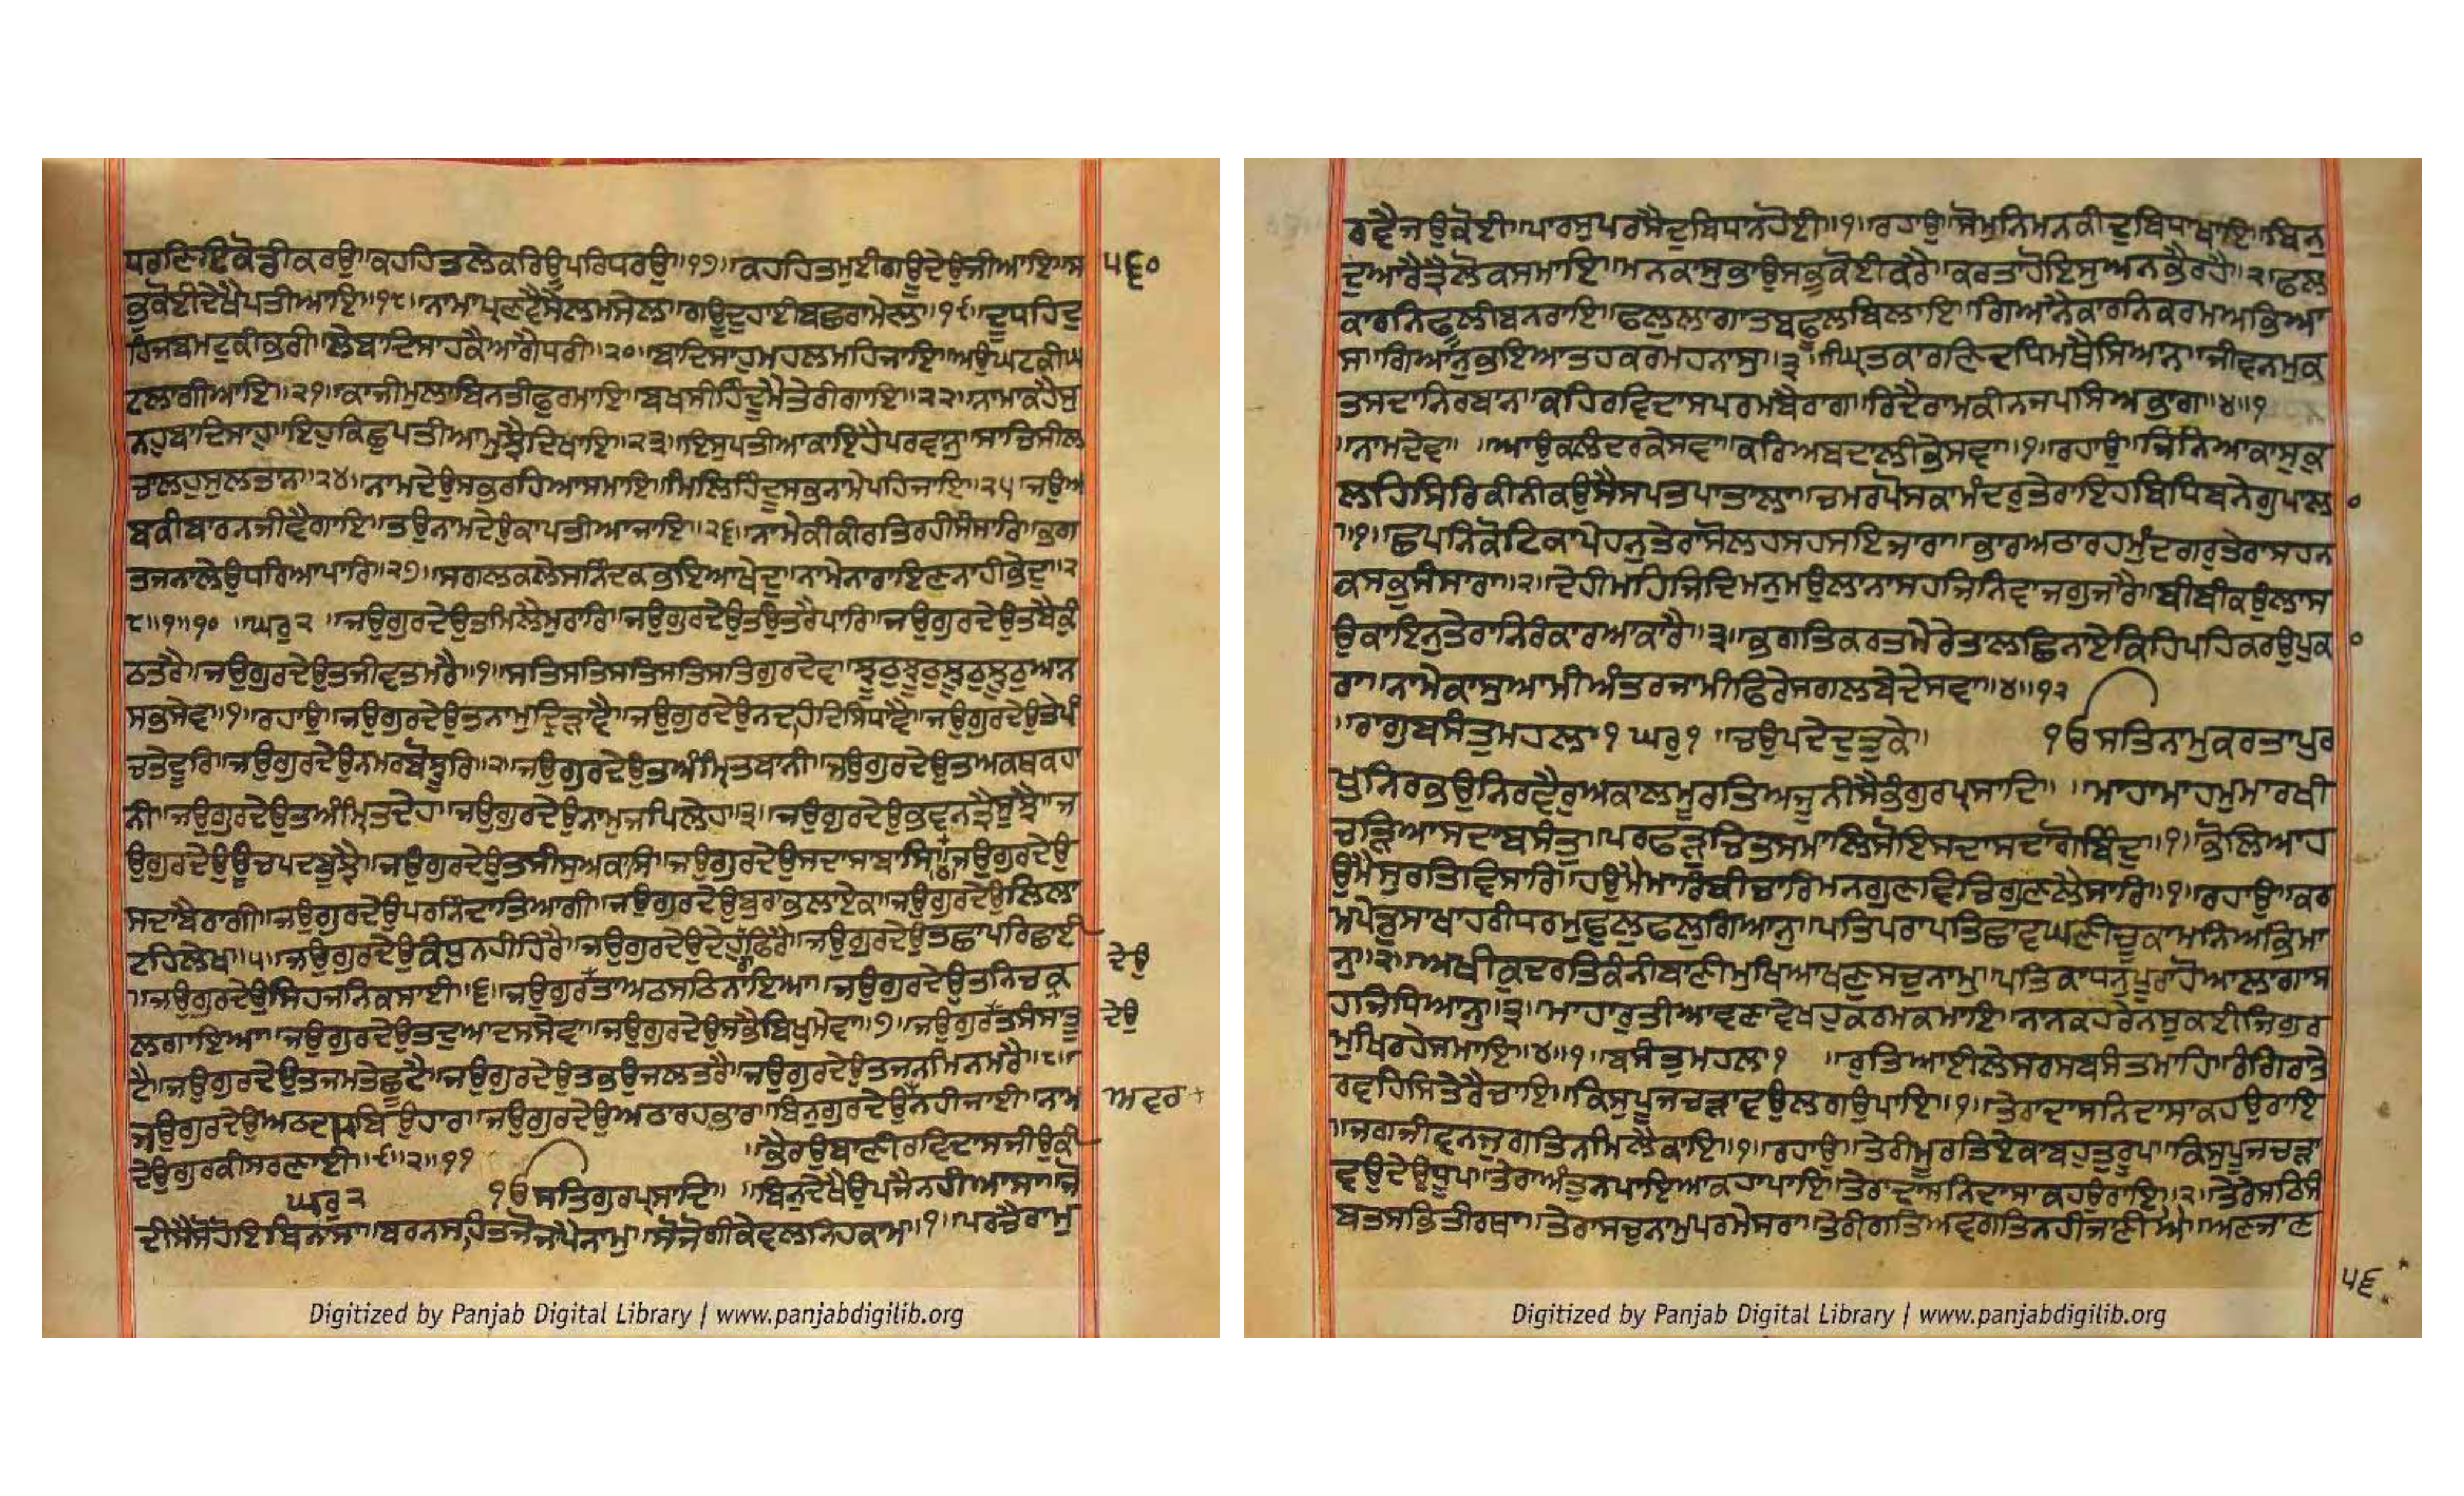 ਧਰਣਿਇਕੋਡੀਕਰਉ॥ਕਹਹਿਤਲੇਕਰਿਊਪਰਿਧਰਉ॥੧੭॥ਕਹਹਿਤਮੁਈਗਊਦੇਉਜੀਆਇ॥ਸ
੫੬੦
ਭੁਕੋਈਦੇਖੈਪਤੀਆਇ॥੧੮॥ਨਾਮਾਪ੍ਰਣਵੈਸੈਲਮਸੇਲ॥ਗਊਦੁਹਾਈਬਛਰਾਮੇਲਿ॥੧੯॥ਦੂਧਹਿਦੁ
ਹਿਜਬਮਟੁਕੀਭਰੀ॥ਲੇਬਾਦਿਸਾਹਕੈਆਗੈਧਰੀ॥੨੦॥ਬਾਦਿਸਾਹੁਮਹਲਮਹਿਜਾਇ॥ਅਉਘਟਕੀਘ
ਟਲਾਗੀਆਇ॥੨੧॥ਕਾਜੀਮੁਲਾਬਿਨਤੀਫੁਰਮਾਇ॥ਬਖਸੀਹਿੰਦੂਮੈਤੇਰੀਗਾਇ॥੨੨॥ਨਾਮਾਕਹੈਸੁ
ਨਹੁਬਾਦਿਸਾਹ॥ਇਹੁਕਿਛੁਪਤੀਆਮੁਝੈਦਿਖਾਇ॥੨੩॥ਇਸੁਪਤੀਆਕਾਇਹੈਪਰਵਾਨੁ॥ਸਾਚਿਸੀਲ
ਚਾਲਹੁਸੁਲਤਾਨ॥੨੪॥ਨਾਮਦੇਉਸਭਰਹਿਆਸਮਾਇ॥ਮਿਲਿਹਿੰਦੂਸਭਨਾਮੇਪਹਿਜਾਇ॥੨੫॥ਜਉਅ
ਬਕੀਬਾਰਨਜੀਵੈਗਾਇ॥ਤਉਨਾਮਦੇਉਕਾਪਤੀਆਜਾਇ॥੨੬॥ਨਾਮੇਕੀਕੀਰਤਿਰਹੀਸੰਸਾਰਿ॥ਭਗ
ਤਜਨਾਲੇਉਧਰਿਆਪਾਰਿ॥੨੭॥ਸਗਲਕਲੇਸਨਿੰਦਕਭਇਆਖੇਦੁ॥ਨਾਮੇਨਾਰਾਇਣਨਾਹੀਭੇਦੁ॥੨
੮॥੧॥੧੦ ॥ਘਰੁ੨ ॥ਜਉਗੁਰਦੇਉਤਮਿਲੈਮੁਰਾਰਿ॥ਜਉਗੁਰਦੇਉਤਉਤਰੈਪਾਰਿ॥ਜਉਗੁਰਦੇਉਤਬੈਕੁੰ
ਠਤਰੈ॥ਜਉਗੁਰਦੇਉਤਜੀਵਤਮਰੈ॥੧॥ਸਤਿਸਤਿਸਤਿਸਤਿਸਤਿਗੁਰਦੇਵ॥ਝੂਠੁਝੂਠੁਝੂਠੁਝੂਠੁਆਨ
ਸਭਸੇਵ॥੧॥ਰਹਾਉ॥ਜਉਗੁਰਦੇਉਤਨਾਮੁਦ੍ਰਿੜਾਵੈ॥ਜਉਗੁਰਦੇਉਨਦਹਦਿਸਿਧਾਵੈ॥ਜਉਗੁਰਦੇਉਤੇਪੰ
ਚਤੇਦੂਰਿ॥ਜਉਗੁਰਦੇਉਨਮਰਬੋਝੂਰਿ॥੨॥ਜਉਗੁਰਦੇਉਤਅੰਮ੍ਰਿਤਬਾਨੀ॥ਜਉਗੁਰਦੇਉਤਅਕਥਕਹਾ
ਨੀ॥ਜਉਗੁਰਦੇਉਤਅੰਮ੍ਰਿਤਦੇਹ॥ਜਉਗੁਰਦੇਉਨਾਮੁਜਪਿਲੇਹ॥੩॥ਜਉਗੁਰਦੇਉਭਵਨਤ੍ਰੈਸੂਝੈ॥ਜ
ਉਗੁਰਦੇਉਊਚਪਦਬੂਝੈ॥ਜਉਗੁਰਦੇਉਤਸੀਸੁਅਕਾਸਿ॥ਜਉਗੁਰਦੇਉਸਦਾਸਾਬਾਸਿ॥੪॥ਜਉਗੁਰਦੇਉ
ਸਦਾਬੈਰਾਗੀ॥ਜਉਗੁਰਦੇਉਪਰਨਿੰਦਾਤਿਆਗੀ॥ਜਉਗੁਰਦੇਉਬੁਰਾਭਲਾਏਕ॥ਜਉਗੁਰਦੇਉਲਿਲਾ
ਟਹਿਲੇਖ॥੫॥ਜਉਗੁਰਦੇਉਕੰਧੁਨਹੀਹਿਰੈ॥ਜਉਗੁਰਦੇਉਦੇਹੁਰਾਫਿਰੈ॥ਜਉਗੁਰਦੇਉਤਛਾਪਰਿਛਾਈ
ਦੇਉ
॥ਜਉਗੁਰਦੇਉਸਿਹਜਨਿਕਸਾਈ॥੬॥ਜਉਗੁਰਤਅਠਸਠਿਨਾਇਆ॥ਜਉਗੁਰਦੇਉਤਨਿਚਕ੍ਰ
ਲਗਾਇਆ॥ਜਉਗੁਰਦੇਉਤਦੁਆਦਸਸੇਵਾ॥ਜਉਗੁਰਦੇਉਸਭੈਬਿਖੁਮੇਵਾ॥੭॥ਜਉਗੁਰਤਸੰਸਾਤੂ
ਦੇਉ
ਟੈ॥ਜਉਗੁਰਦੇਉਤਜਮਤੇਛੂਟੈ॥ਜਉਗੁਰਦੇਉਤਭਉਜਲਤਰੈ॥ਜਉਗੁਰਦੇਉਤਜਨਮਿਨਮਰੈ॥੮॥
ਜਉਗੁਰਦੇਉਅਠਦਸਬਿਉਹਾਰ॥ਜਉਗੁਰਦੇਉਅਠਾਰਹਭਾਰ॥ਬਿਨੁਗੁਰਦੇਉਨਹੀਜਾਈ॥ਨਾਮ
ਅਵਰ
ਦੇਉਗੁਰਕੀਸਰਣਾਈ॥੯॥੨॥੧੧ ॥ਭੈਰਉਬਾਣੀਰਵਿਦਾਸਜੀਉਕੀ
ਘਰੁ੨ ੴਸਤਿਗੁਰਪ੍ਰਸਾਦਿ॥ ॥ਬਿਨੁਦੇਖੈਉਪਜੈਨਹੀਆਸਾ॥ਜੋ
ਦੀਸੈਸੋਹੋਇਬਿਨਾਸਾ॥ਬਰਨਸਹਿਤਜੋਜਾਪੈਨਾਮੁ॥ਸੋਜੋਗੀਕੇਵਲਨਿਹਕਾਮ॥੧॥ਪਰਚੈਰਾਮੁ
Digitized by Panjab Digital Library | www.panjabdigilib.org
ਰਵੈਜਉਕੋਈ॥ਪਾਰਸੁਪਰਸੈਦੁਬਿਧਾਨਹੋਈ॥੧॥ਰਹਾਉ॥ਸੋਮੁਨਿਮਨਕੀਦੁਬਿਧਾਖਾਇ॥ਬਿਨੁ
ਦੁਆਰੈਤ੍ਰੈਲੋਕਸਮਾਇ॥ਮਨਕਾਸੁਭਾਉਸਭੁਕੋਈਕਰੈ॥ਕਰਤਾਹੋਇਸੁਅਨਭੈਰਹੈ॥੨॥ਫਲ
ਕਾਰਨਿਫੂਲੀਬਨਰਾਇ॥ਫਲੁਲਾਗਾਤਬਫੂਲਬਿਲਾਇ॥ਗਿਆਨੈਕਾਰਨਿਕਰਮਅਭਿਆ
ਸ॥ਗਿਆਨੁਭਇਆਤਹਕਰਮਹਨਾਸੁ॥੩॥ਘ੍ਰਿਤਕਾਰਣਿਦਧਿਮਥੈਸਿਆਨ॥ਜੀਵਨਮੁਕ
ਤਸਦਾਨਿਰਬਾਨ॥ਕਹਿਰਵਿਦਾਸਪਰਮਬੈਰਾਗ॥ਰਿਦੈਰਾਮਕੀਨਜਪਸਿਅਭਾਗ॥੪॥੧
॥ਨਾਮਦੇਵ॥ ॥ਆਉਕਲੰਦਰਕੇਸਵਾ॥ਕਰਿਅਬਦਾਲੀਭੇਸਵਾ॥੧॥ਰਹਾਉ॥ਜਿਨਿਆਕਾਸੁਕੁ
ਲਹਿਸਿਰਿਕੀਨੀਕਉਸੈਸਪਤਪਾਤਾਲਾ॥ਚਮਰਪੋਸਕਾਮੰਦਰੁਤੇਰਾਇਹਬਿਧਿਬਨੇਗੁਪਾਲ
॥੧॥ਛਪਨਿਕੋਟਿਕਾਪੇਹਨੁਤੇਰਾਸੋਲਹਸਹਸਇਜਾਰਾ॥ਭਾਰਅਠਾਰਹਮੁੰਦਗਰੁਤੇਰਾਸਹਨ
ਕਸਭਸੰਸਾਰਾ॥੨॥ਦੇਹੀਮਹਿਜਿਦਿਮਨੁਮਉਲਾਨਾਸਹਜਿਨਿਵਾਜਗੁਜਰੈ॥ਬੀਬੀਕਉਲਾਸ
ਉਕਾਇਨੁਤੇਰਾਨਿਰੰਕਾਰਆਕਾਰੈ॥੩॥ਭਗਤਿਕਰਤਮੇਰੇਤਾਲਛਿਨਾਏਕਿਹਿਪਹਿਕਰਉਪੁਕ
ਰਾ॥ਨਾਮੇਕਾਸੁਆਮੀਅੰਤਰਜਾਮੀਫਿਰੇਸਗਲਬੇਦੇਸਵਾ॥੪॥੧੨
॥ਰਾਗੁਬਸੰਤੁਮਹਲਾ੧ ਘਰੁ੧ ॥ਚਉਪਦੇਦੁਤੁਕੇ॥ ੴਸਤਿਨਾਮੁਕਰਤਾਪੁਰ
ਖੁਨਿਰਭਉਨਿਰਵੈਰੁਅਕਾਲਮੂਰਤਿਅਜੂਨੀਸੈਭੰਗੁਰਪ੍ਰਸਾਦਿ॥ ॥ਮਾਹਾਮਾਹਮੁਮਾਰਖੀ
ਚੜਿਆਸਦਾਬਸੰਤੁ॥ਪਰਫੜੁਚਿਤੁਸਮਾਲਿਸੋਇਸਦਾਸਦਾਗੋਬਿੰਦੁ॥੧॥ਭੋਲਿਆਹ
ਉਮੈਸੁਰਤਿਵਿਸਾਰਿ॥ਹਉਮੈਮਾਰਿਬੀਚਾਰਿਮਨਗੁਣਵਿਚਿਗੁਣਲੈਸਾਰਿ॥੧॥ਰਹਾਉ॥ਕਰ
ਮਪੇਡੁਸਾਖਾਹਰੀਧਰਮੁਫੁਲੁਫਲੁਗਿਆਨੁ॥ਪਤਿਪਰਾਪਤਿਛਾਵਘਣੀਚੂਕਾਮਨਿਅਭਿਮਾ
ਨੁ॥੨॥ਅਖੀਕੁਦਰਤਿਕੰਨੀਬਾਣੀਮੁਖਿਆਖਣੁਸਚੁਨਾਮੁ॥ਪਤਿਕਾਧਨੁਪੂਰਾਹੋਆਲਾਗਾਸ
ਹਜਿਧਿਆਨੁ॥੩॥ਮਾਹਾਰੁਤੀਆਵਣਾਵੇਖਹੁਕਰਮਕਮਾਇ॥ਨਾਨਕਹਰੇਨਸੂਕਈਜਿਗੁਰ
ਮੁਖਿਰਹੇਸਮਾਇ॥੪॥੧॥ਬਸੰਤੁਮਹਲਾ੧ ॥ਰੁਤਿਆਈਲੇਸਰਸਬਸੰਤਮਾਹਿ॥ਰੰਗਿਰਾਤੇ
ਰਵਹਿਸਿਤੇਰੈਚਾਇ॥ਕਿਸੁਪੂਜਚੜਾਵਉਲਗਉਪਾਇ॥੧॥ਤੇਰਾਦਾਸਨਿਦਾਸਾਕਹਉਰਾਇ
॥ਜਗਜੀਵਨਜੁਗਤਿਨਮਿਲੈਕਾਇ॥੧॥ਰਹਾਉ॥ਤੇਰੀਮੂਰਤਿਏਕਾਬਹੁਤੁਰੂਪ॥ਕਿਸੁਪੂਜਚੜਾ
ਵਉਦੇਉਧੂਪ॥ਤੇਰਾਅੰਤੁਨਪਾਇਆਕਹਾਪਾਇ॥ਤੇਰਾਦਾਸਨਿਦਾਸਾਕਹਉਰਾਇ॥੨॥ਤੇਰੇਸਠਿਸੰ
ਬਤਸਭਿਤੀਰਥਾ॥ਤੇਰਾਸਚੁਨਾਮੁਪਰਮੇਸਰਾ॥ਤੇਰੀਗਤਿਅਵਗਤਿਨਹੀਜਾਣੀਐ॥ਅਣਜਾਣ
੫੬
Digitized by Panjab Digital Library | www.panjabdigilib.org